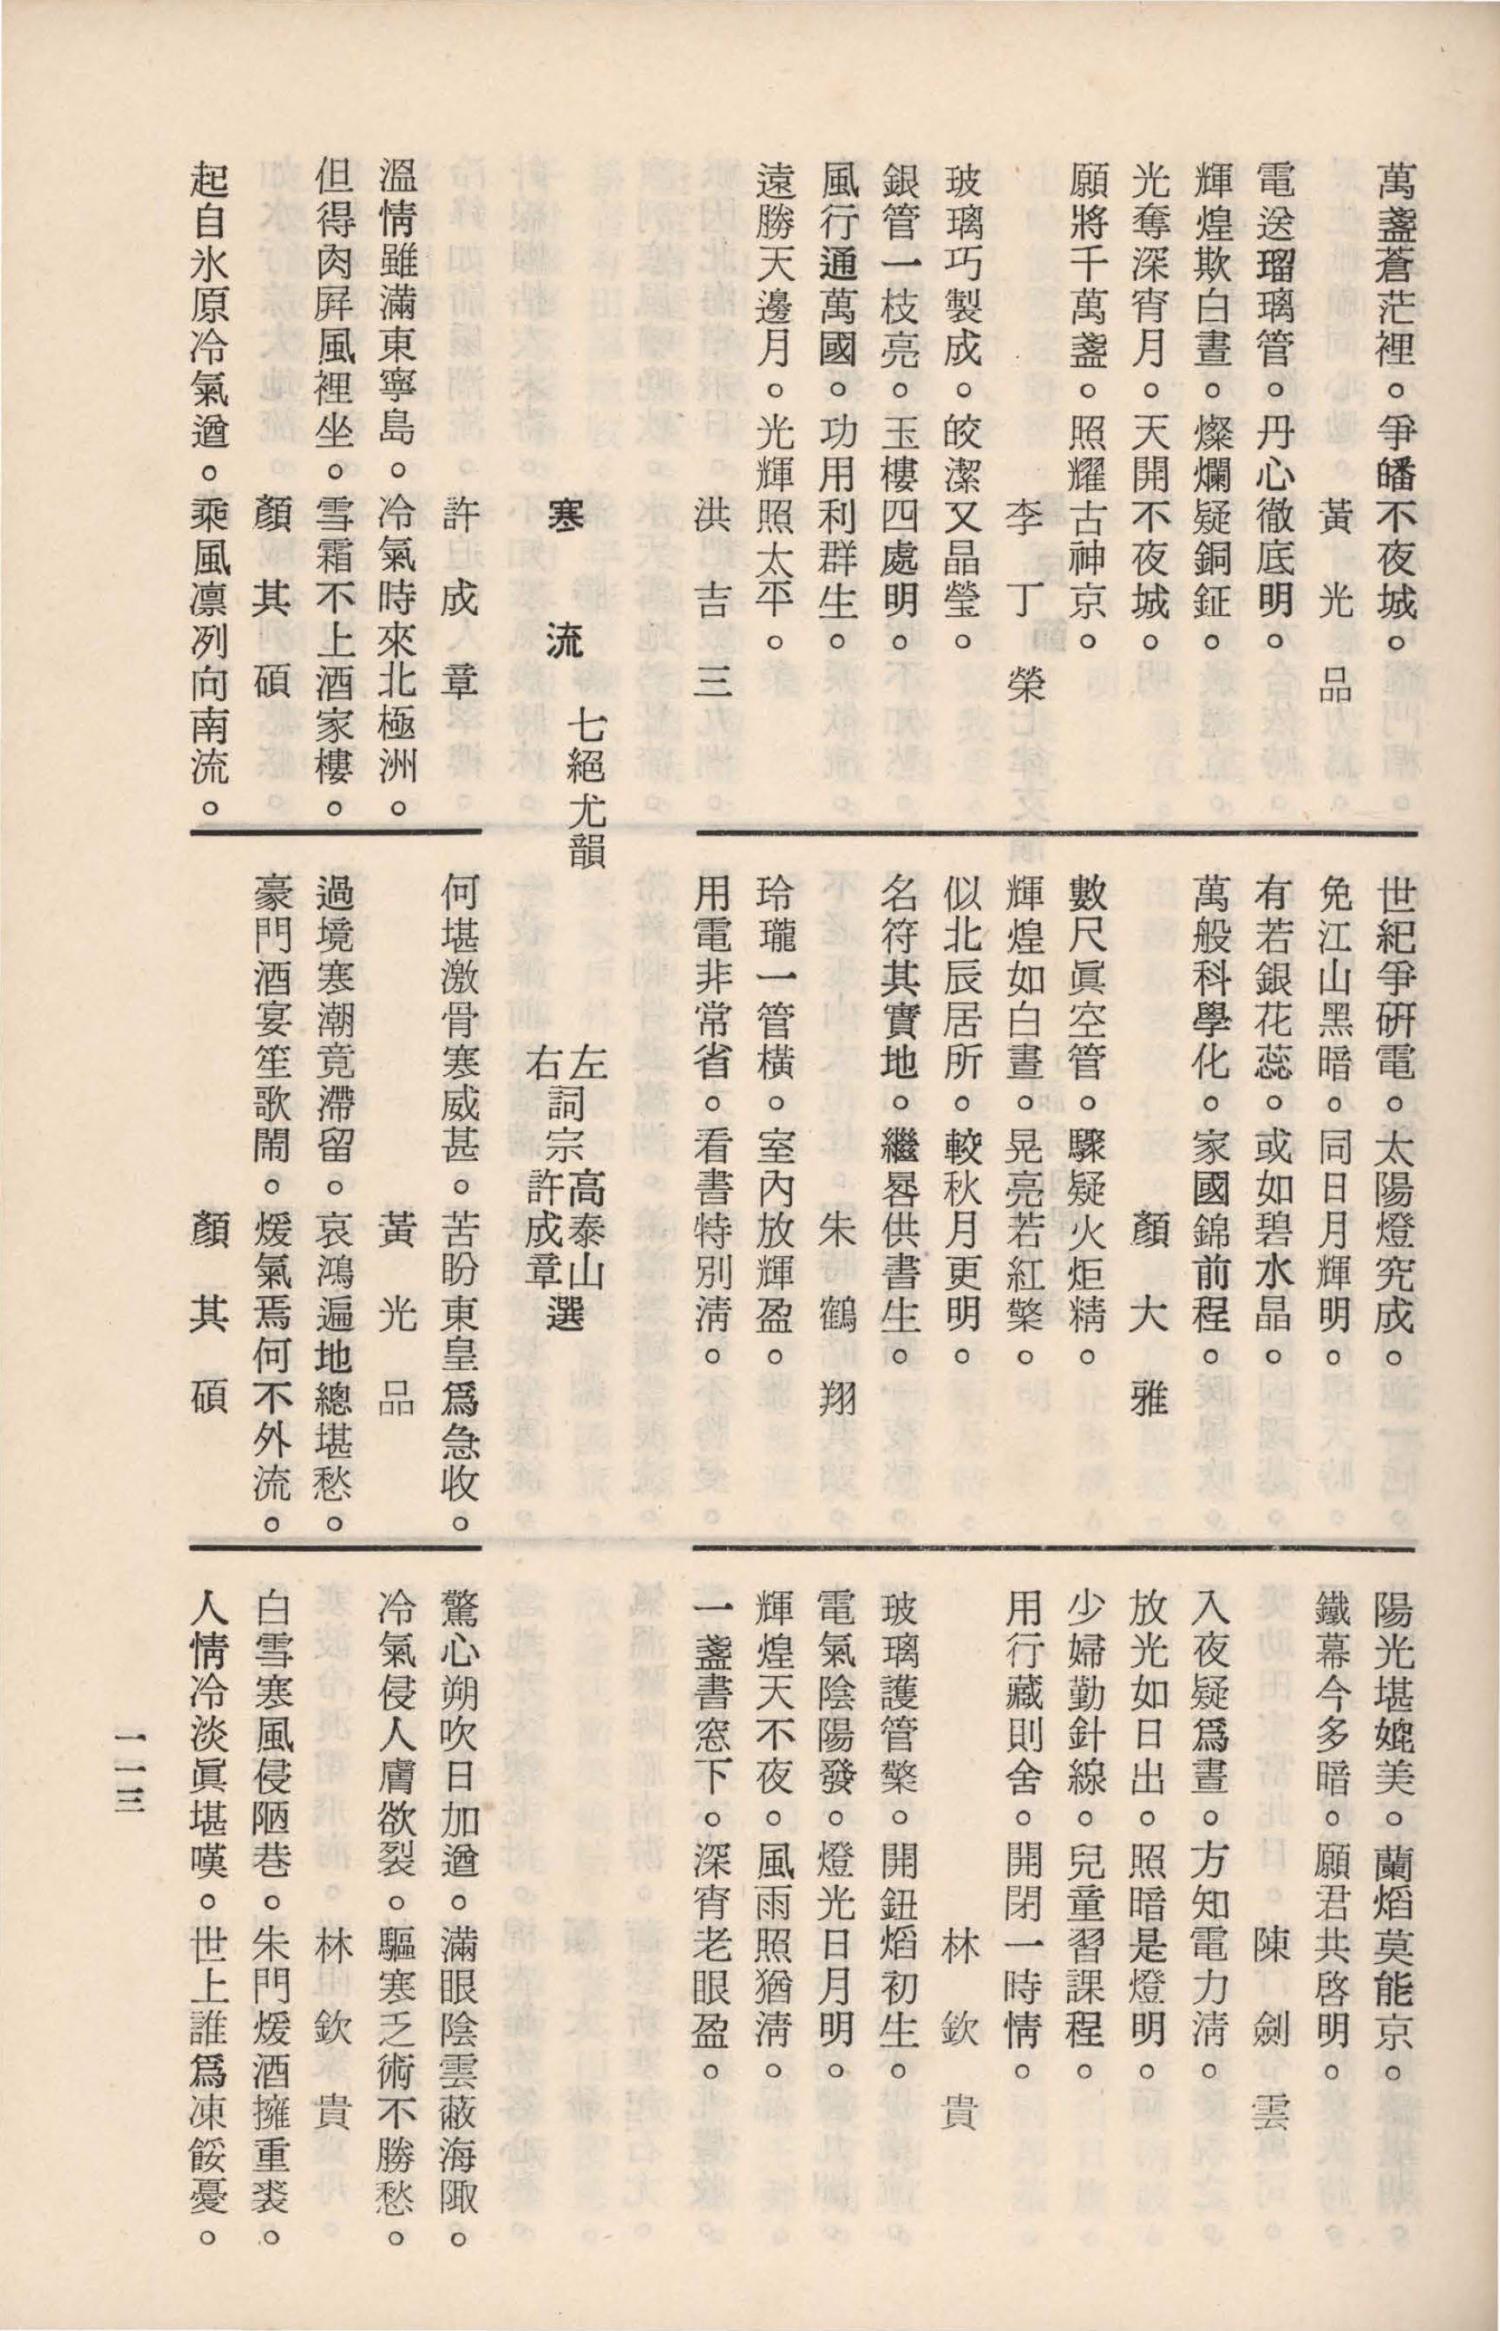 萬盞蒼茫裡。爭皤不夜城。
黃光品
電送瑠璃管。丹心徹底明。
輝煌欺白晝。燦爛疑銅鉦。
光奪深宵月。天開不夜城。
願將千萬盞。照耀古神京。
李丁榮
玻璃巧製成。皎潔又晶瑩。
銀管一枝亮。玉樓四處明。
風行通萬國。功用利群生。
遠勝天邊月。光輝照太平。
洪吉三
世紀爭硏電。太陽燈究成。
免江山黑暗。同日月輝明。
有若銀花蕊。或如碧水晶。
萬般科學化。家國錦前程。
顏大雅
數尺眞空管。驟疑火炬精。
輝煌如白晝。晃亮若紅檠。
似北辰居所。較秋月更明。
名符其實地。繼晷供書生。
朱鶴翔
玲瓏一管橫。室內放輝盈。
用電非常省。看書特別淸。
陽光堪媲美。蘭熖莫能京。
鐵幕今多暗。願君共啓明。
陳劍雲
入夜疑爲晝。方知電力淸。
放光如日出。照暗是燈明。
少婦勤針線。兒童習課程。
用行藏則舍。開閉一時情。
林欽貴
玻璃護管檠。開鈕熖初生。
電氣陰陽發。燈光日月明。
輝煌天不夜。風雨照猶淸。
一盞書窓下。深宵老眼盈。
寒流 七絕尤韻
左右詞宗高泰山許成章選
許成章
溫情雖滿東寧島。冷氣時來北極洲。
但得肉屛風裡坐。雪霜不上酒家樓。
顏其碩
起自氷原冷氣遒。乘風凛冽向南流。
何堪激骨寒威甚。苦盼東皇爲急收。
黃光品
過境寒潮竟滯留。哀鴻遍地總堪愁。
豪門酒宴笙歌鬧。煖氣焉何不外流。
顏其碩
驚心朔吹日加遒。滿眼陰雲蔽海陬。
冷氣侵人膚欲裂。驅寒乏術不勝愁。
林欽貴
白雪寒風侵陋巷。朱門煖酒擁重裘。
人情冷淡眞堪嘆。世上誰爲凍餒憂。
一一三